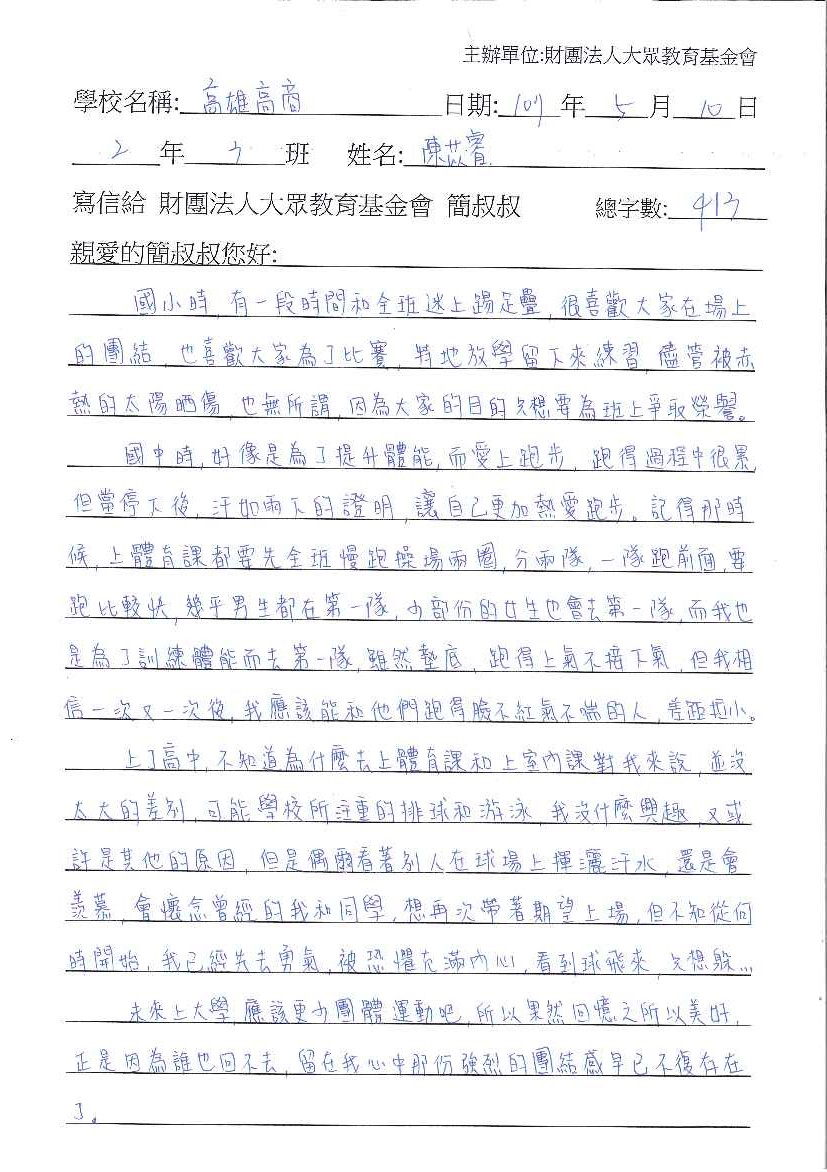 主辦單位:財團法人大眾教育基金會
學校名稱: 高雄高商 日期: 107 年 5 月 10 日
2 年 3 班 姓名: 陳苡睿
寫信給 財團法人大眾教育基金會 簡叔叔 總字數: 413
親愛的簡叔叔您好:
國小時,有一段時間和全班迷上踢足壘,很喜歡大家在場上
的團結,也喜歡大家為了比賽,特地放學留下來練習,儘管被赤
熱的太陽晒傷,也無所謂,因為大家的目的只想要為班上爭取榮譽。
國中時,好像是為了提升體能,而愛上跑步,跑得過程中很累,
但當停下後,汗如雨下的證明,讓自己更加熱愛跑步。記得那時
候,上體育課都要先全班慢跑操場兩圈,分兩隊,一隊跑前面,要
跑比較快,幾乎男生都在第一隊,少部份的女生也會去第一隊,而我也
是為了訓練體能而去第一隊,雖然墊底,跑得上氣不接下氣,但我相
信一次又一次後,我應該能和他們跑得臉不紅氣不喘的人,差距拉小。
上了高中,不知道為什麼去上體育課和上室內課對我來說,並沒
太大的差別,可能學校所注重的排球和游泳,我沒什麼興趣,又或
許是其他的原因,但是偶爾看著別人在球場上揮灑汗水,還是會
羨慕,會懷念曾經的我和同學,想再次帶著期望上場,但不知從何
時開始,我已經失去勇氣,被恐懼充滿內心,看到球飛來,只想躲...
未來上大學應該更少團體運動吧,所以果然回憶之所以美好,
正是因為誰也回不去,留在我心中那份強烈的團結感早已不復存在
了。